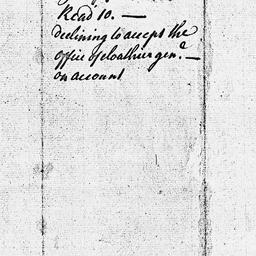 Read 10. —
declining to accept the
office of cloathier gen.l —
on account